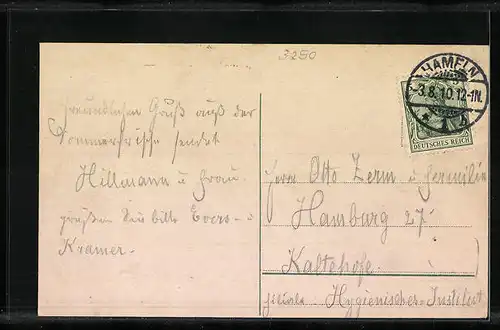 3250
HAMELN
-3.8.10.12-1N.
* 1 b
DEUTSCHES REICH
Freundlichen Gruß aus der
Sommerfrische sendet
Hillmann u Frau
grüßen Sie bitte Evers u
Kramer.
Herrn Otto Zerm u Familie
Hamburg 27.
Kaltehofe.
Filiale Hygienisches-Institut